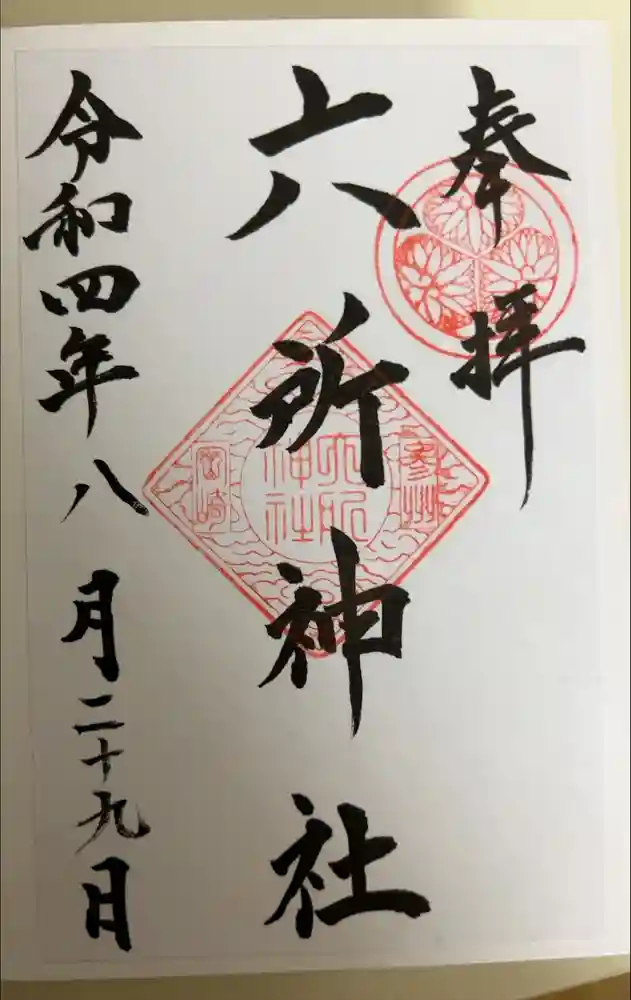 奉拝
六所神社
参州
六所
神社
岡崎
令和四年八月二十九日